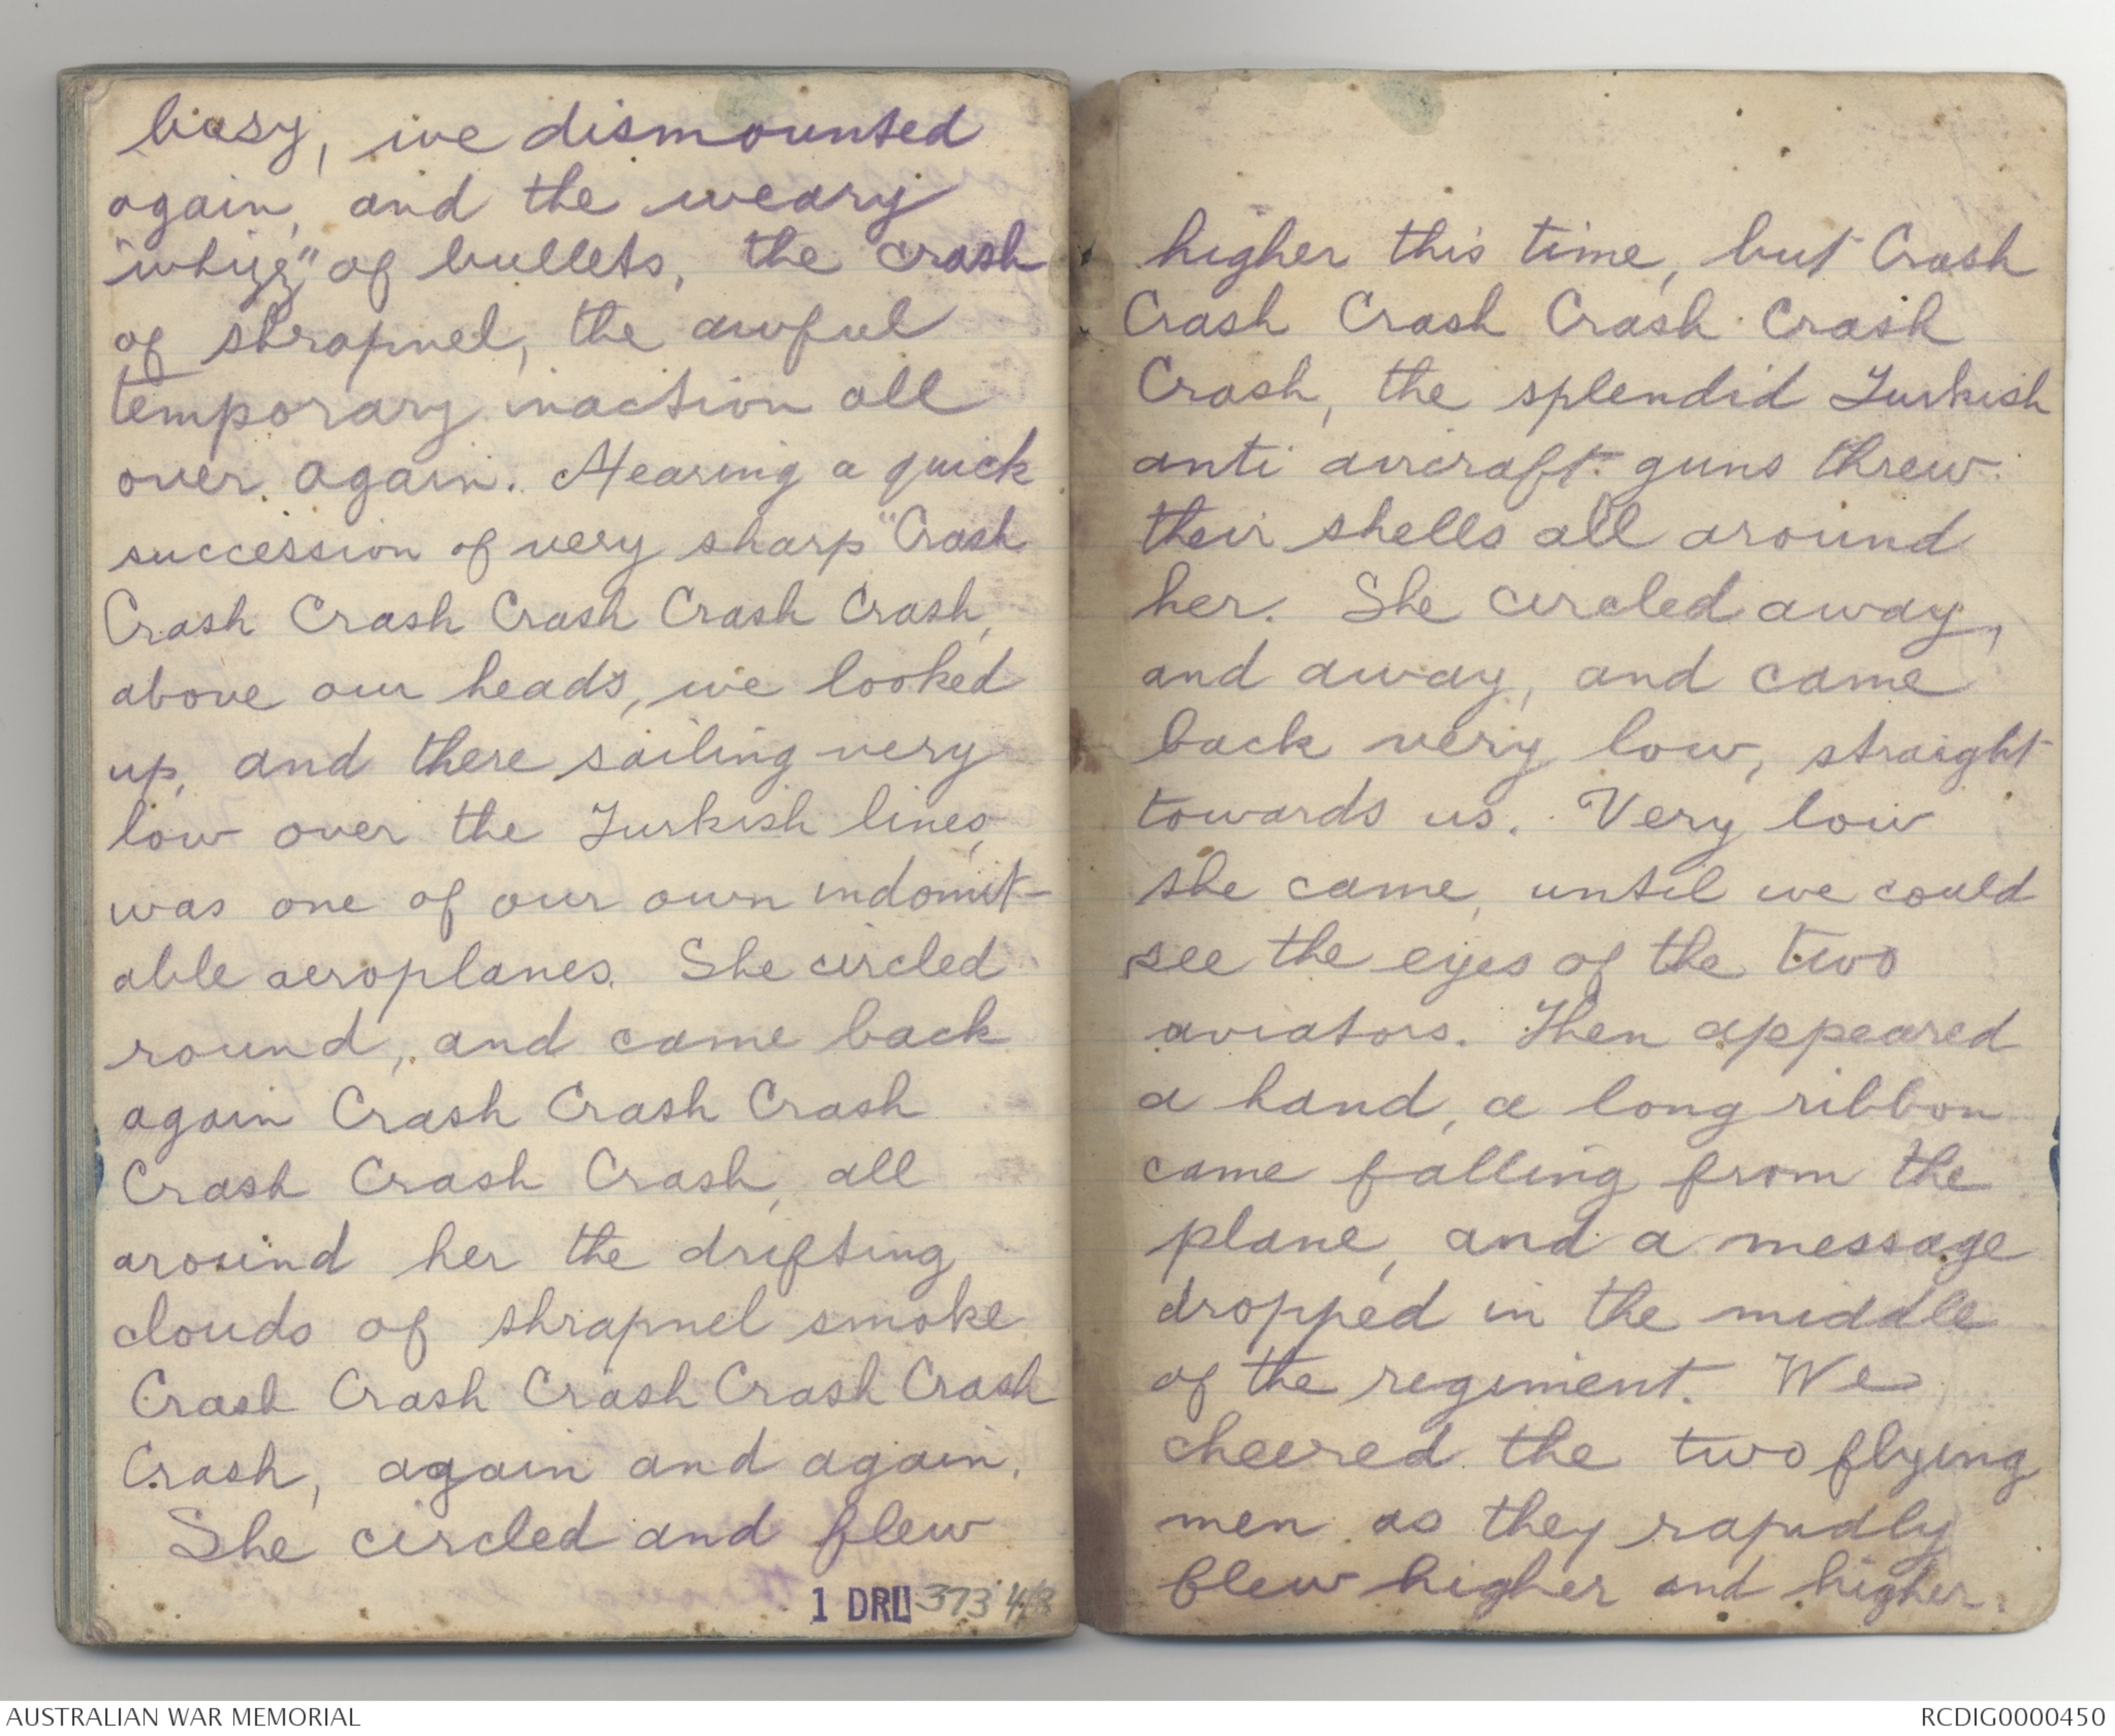 busy, we dismounted
again, and the weary
"whizz" of bullets, the crash
of shrapnel, the awful
temporary inaction all
over again. Hearing a quick
succession of very sharp "Crash
Crash Crash Crash Crash Crash,
above our heads, we looked
up, and there sailing very
low over the Turkish lines,
was one of our own indomit-
able aeroplanes. She circled
round, and came back
again Crash Crash Crash
Crash Crash Crash, all
around her the drifting
clouds of shrapnel smoke
Crash Crash Crash Crash Crash
Crash, again and again.
She circled and flew
1 DRL 373 4/3
higher this time, but Crash
Crash Crash Crash Crash
Crash, the splendid Turkish
anti aircraft guns threw
their shells all around
her. She circled away,
and away, and came
back very low, straight
towards us. Very low
she came, until we could
see the eyes of the two
aviators. Then appeared
a hand, a long ribbon
came falling from the
plane, and a message
dropped in the middle
of the regiment. We
cheered the two flying
men as they rapidly
flew higher and higher.
AUSTRALIAN WAR MEMORIAL
RCDIG0000450